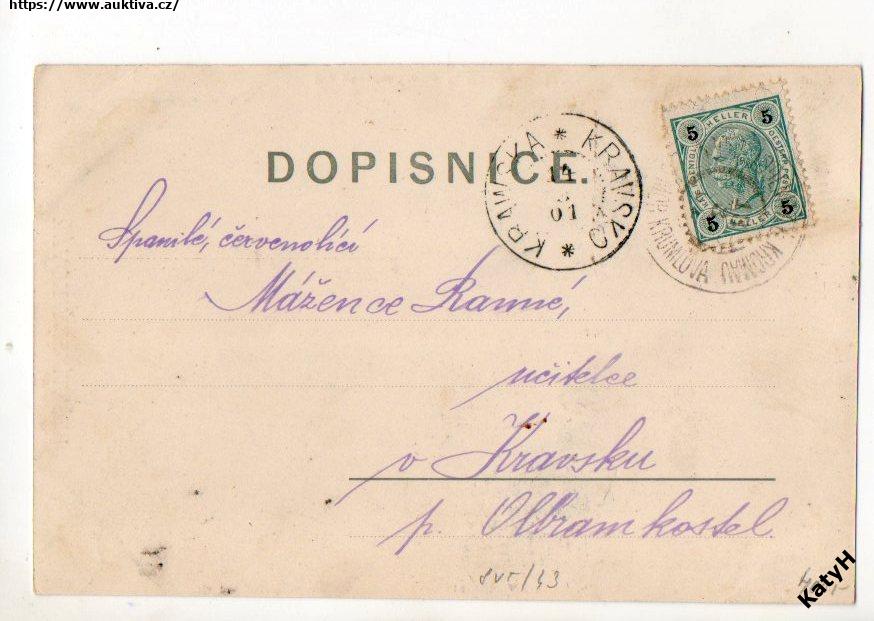 https://www.auktiva.cz/
DOPISNICE.
KRAWSKA * KRAVSKO *
14
01
5 HELLER 5
5 5
KRUMLOVA
Spanilé, červenolící
Mážence Ranné,
učitelce
v Kravsku
p. Olbramkostel.
KatyH